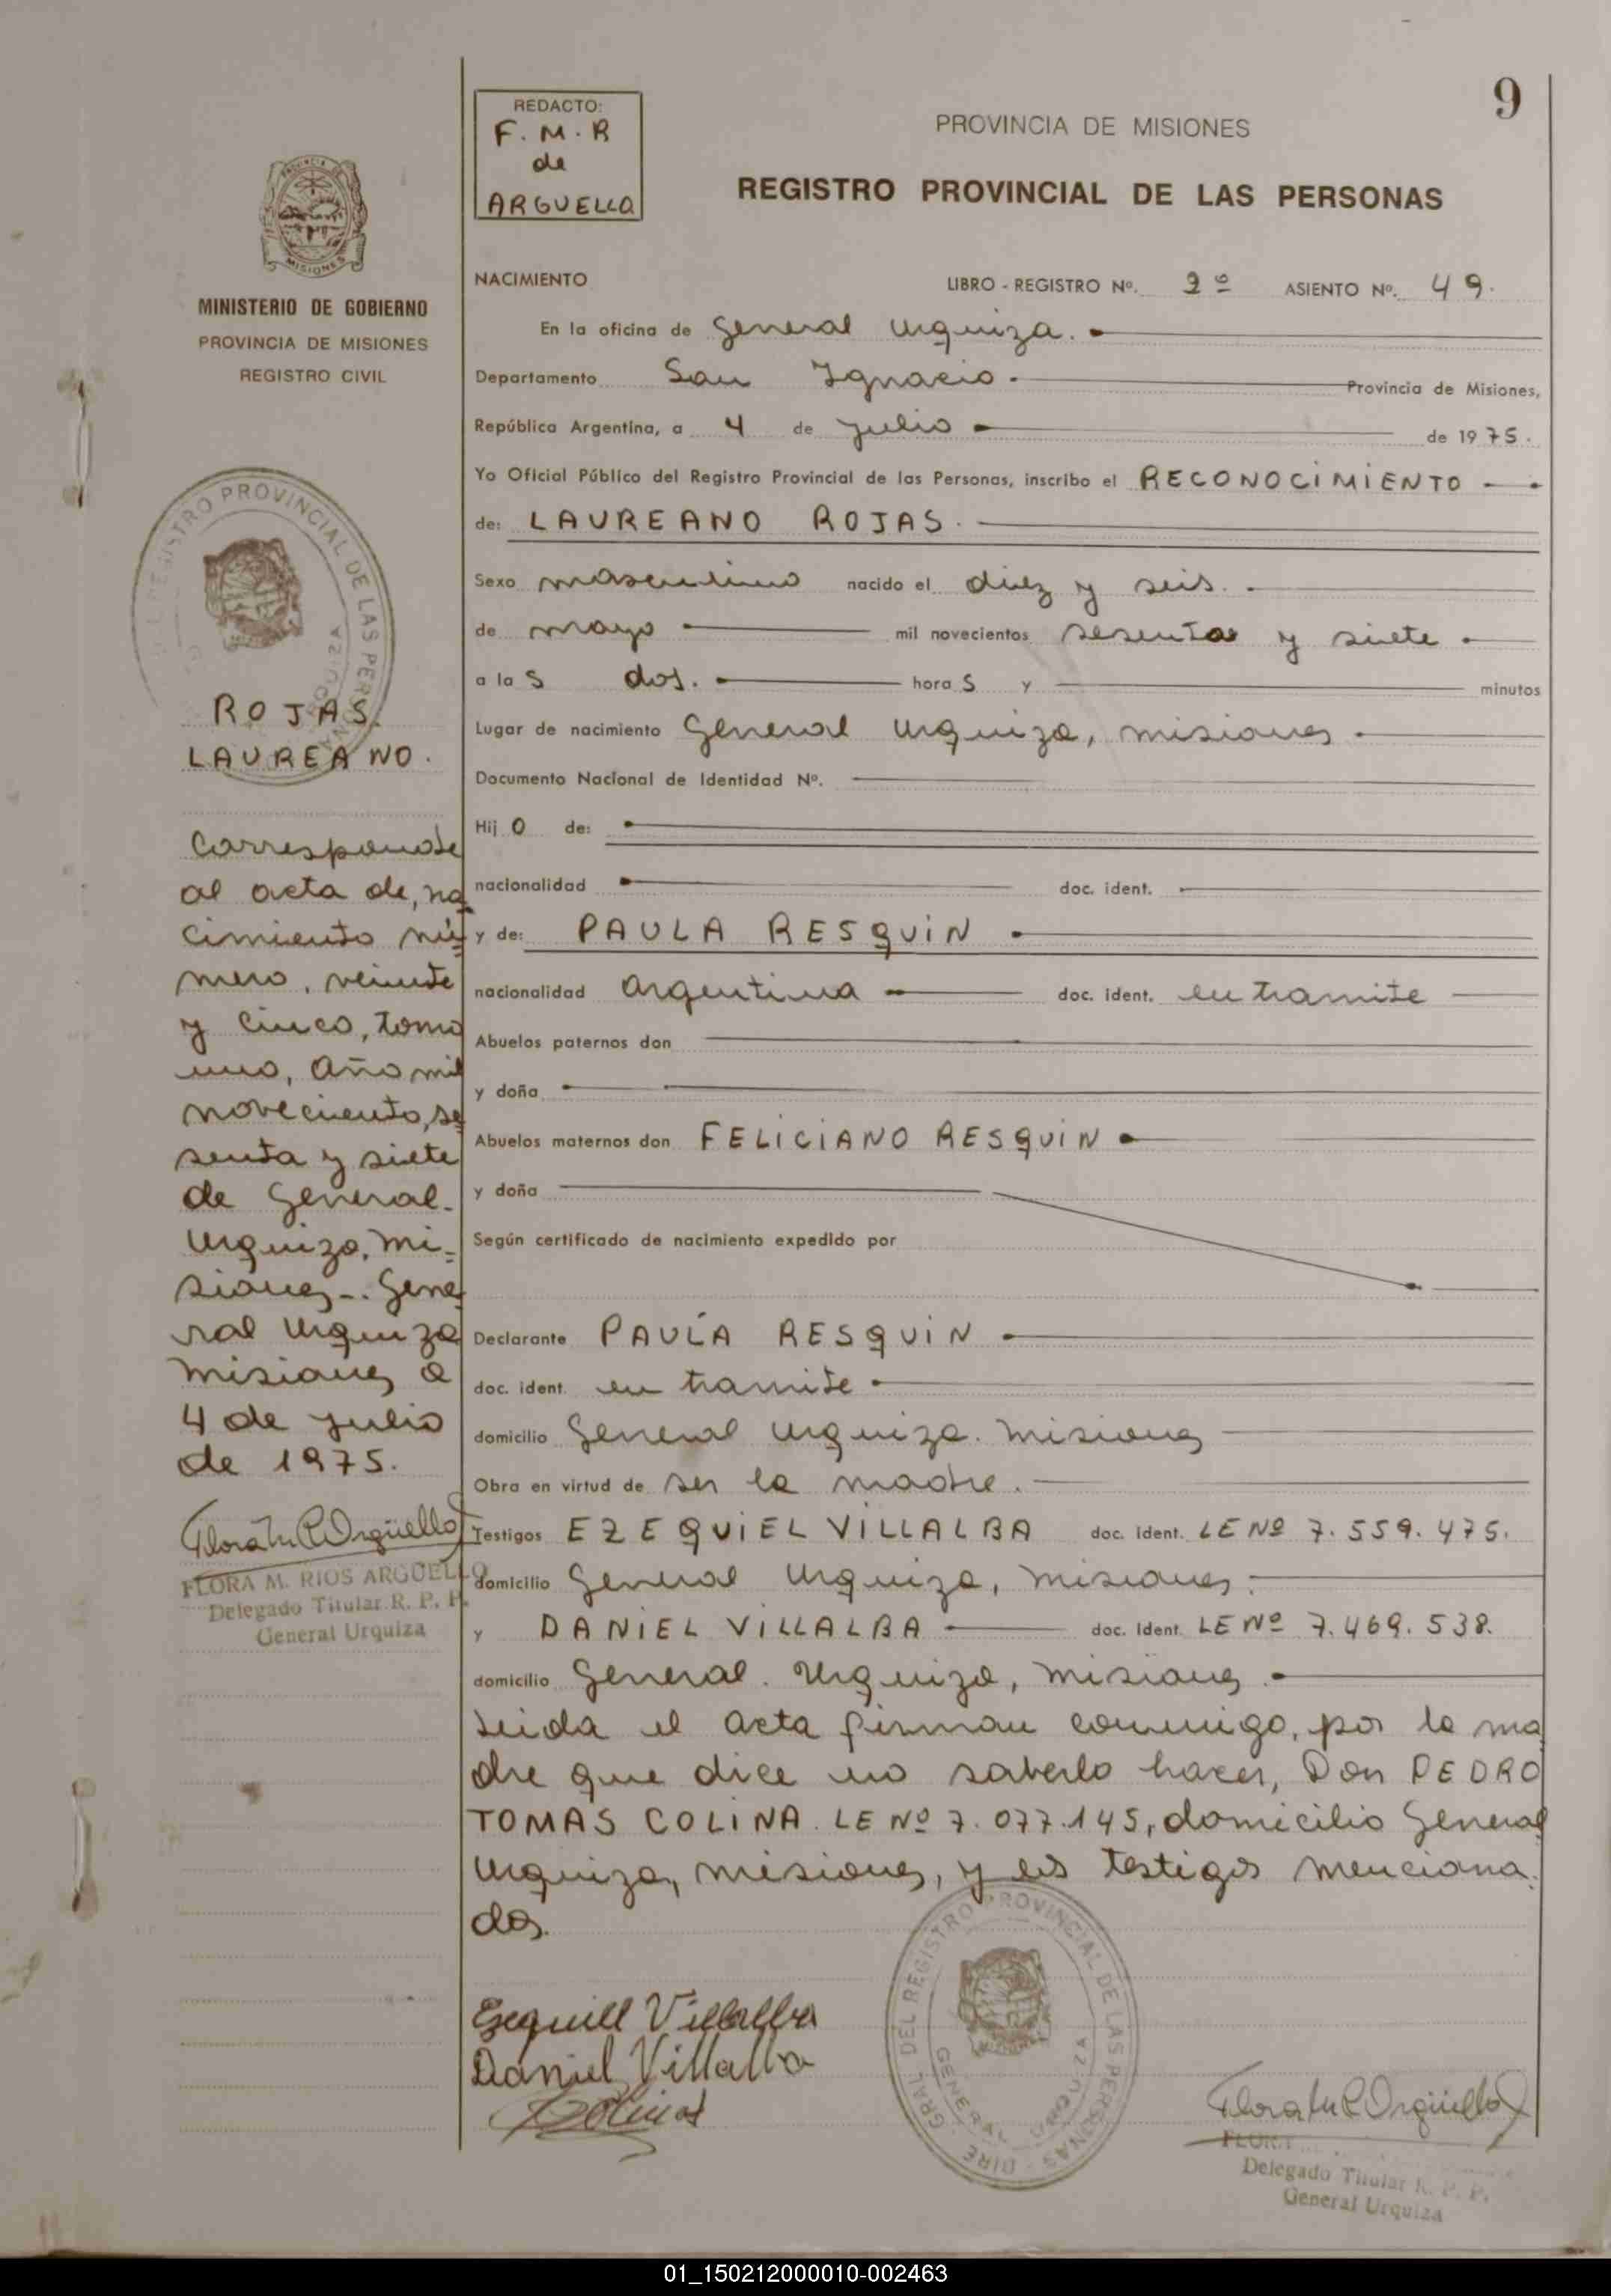 9
REDACTO:
F. M. R
de
ARGUELLO
PROVINCIA DE MISIONES
REGISTRO PROVINCIAL DE LAS PERSONAS
MISIONES
MINISTERIO DE GOBIERNO
PROVINCIA DE MISIONES
REGISTRO CIVIL
REGISTRO PROVINCIAL DE LAS PERSONAS
ROJAS
LAUREANO.
Corresponde
al acta de, na
cimiento nú=
mero, veinte
y cinco, tomo
uno, Año mil
novecientos, se
senta y siete
de General-
Urquiza, Mi=
siones-. Gene
ral Urquiza
Misiones a
4 de julio
de 1975.
FLORA M. RIOS ARGÜELLO
Delegado Titular R. P. P.
General Urquiza
NACIMIENTO LIBRO - REGISTRO Nº. 2º ASIENTO Nº. 49.
En la oficina de General Urquiza.
Departamento San Ignacio. Provincia de Misiones,
República Argentina, a 4 de julio de 1975.
Yo Oficial Público del Registro Provincial de las Personas, inscribo el RECONOCIMIENTO
de: LAUREANO ROJAS.
Sexo masculino nacido el diez y seis.
de mayo mil novecientos sesenta y siete
a las dos. horas y minutos
Lugar de nacimiento General Urquiza, Misiones.
Documento Nacional de Identidad Nº.
Hijo de:
nacionalidad doc. ident.
y de: PAULA RESQUIN
nacionalidad Argentina doc. ident. en tramite
Abuelos paternos don
y doña
Abuelos maternos don FELICIANO RESQUIN
y doña
Según certificado de nacimiento expedido por
Declarante PAULA RESQUIN
doc. ident. en tramite
domicilio General Urquiza. Misiones
Obra en virtud de ser la madre.
Testigos EZEQUIEL VILLALBA doc. ident. LE Nº 7.559.475.
domicilio General Urquiza, Misiones.
y DANIEL VILLALBA doc. ident. LE Nº 7.469.538.
domicilio General. Urquiza, Misiones.
Leida el acta firman conmigo, por la ma
dre que dice no saberlo hacer, Don PEDRO
TOMAS COLINA. LE Nº 7.077.145, domicilio General
Urquiza, Misiones, y los testigos menciona.
dos.
Ezequiel Villalba
Daniel Villalba
GRAL. DEL REGISTRO PROVINCIAL DE LAS PERSONAS - DIRE
GENERAL URQUIZA
Delegado Titular R. P. P.
General Urquiza
01_150212000010-002463